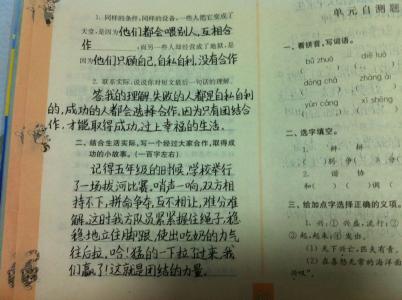 1. 同样的条件，同样的设备，一些人把它变成了
天堂，是因为他们都会喂别人，互相合
作，而另一些人却经营成了地狱，是
因为他们只顾自己，自私自利，没有合作
2. 联系实际，说说你对短文最后一句话的理解。
答我的理解，失败的人都是自私自利
的，成功的人都会选择合作，因为只有团结合
作，才能取得成功，过上幸福的生活。
二、结合生活实际，写一个经过大家合作，取得成
功的小故事。(一百字左右)
记得五年级的时候，学校举行
了一场拔河比赛，哨声一响，双方相
持不下，拼命争夺，互不相让，难分难
解，这时我方队员紧紧握住绳子，稳
稳地立住脚跟，使出吃奶的力气
往后拉，哈！猛的一下拉了过来，我
们赢了！这就是团结的力量。
单元自测题
一、看拼音，写词语。
bǔ zhuō
dòng chā
yùn cáng xī shēng
二、选字填空。
1. 辩 辨
2. 谐 调
三、给加点字选择正确的义项。
1. 兴：① 兴盛，流行；②
③ 起，起来；④ 发生。
(1) 天下兴亡，匹夫有责。
(2) 在喜怒无常的海洋面